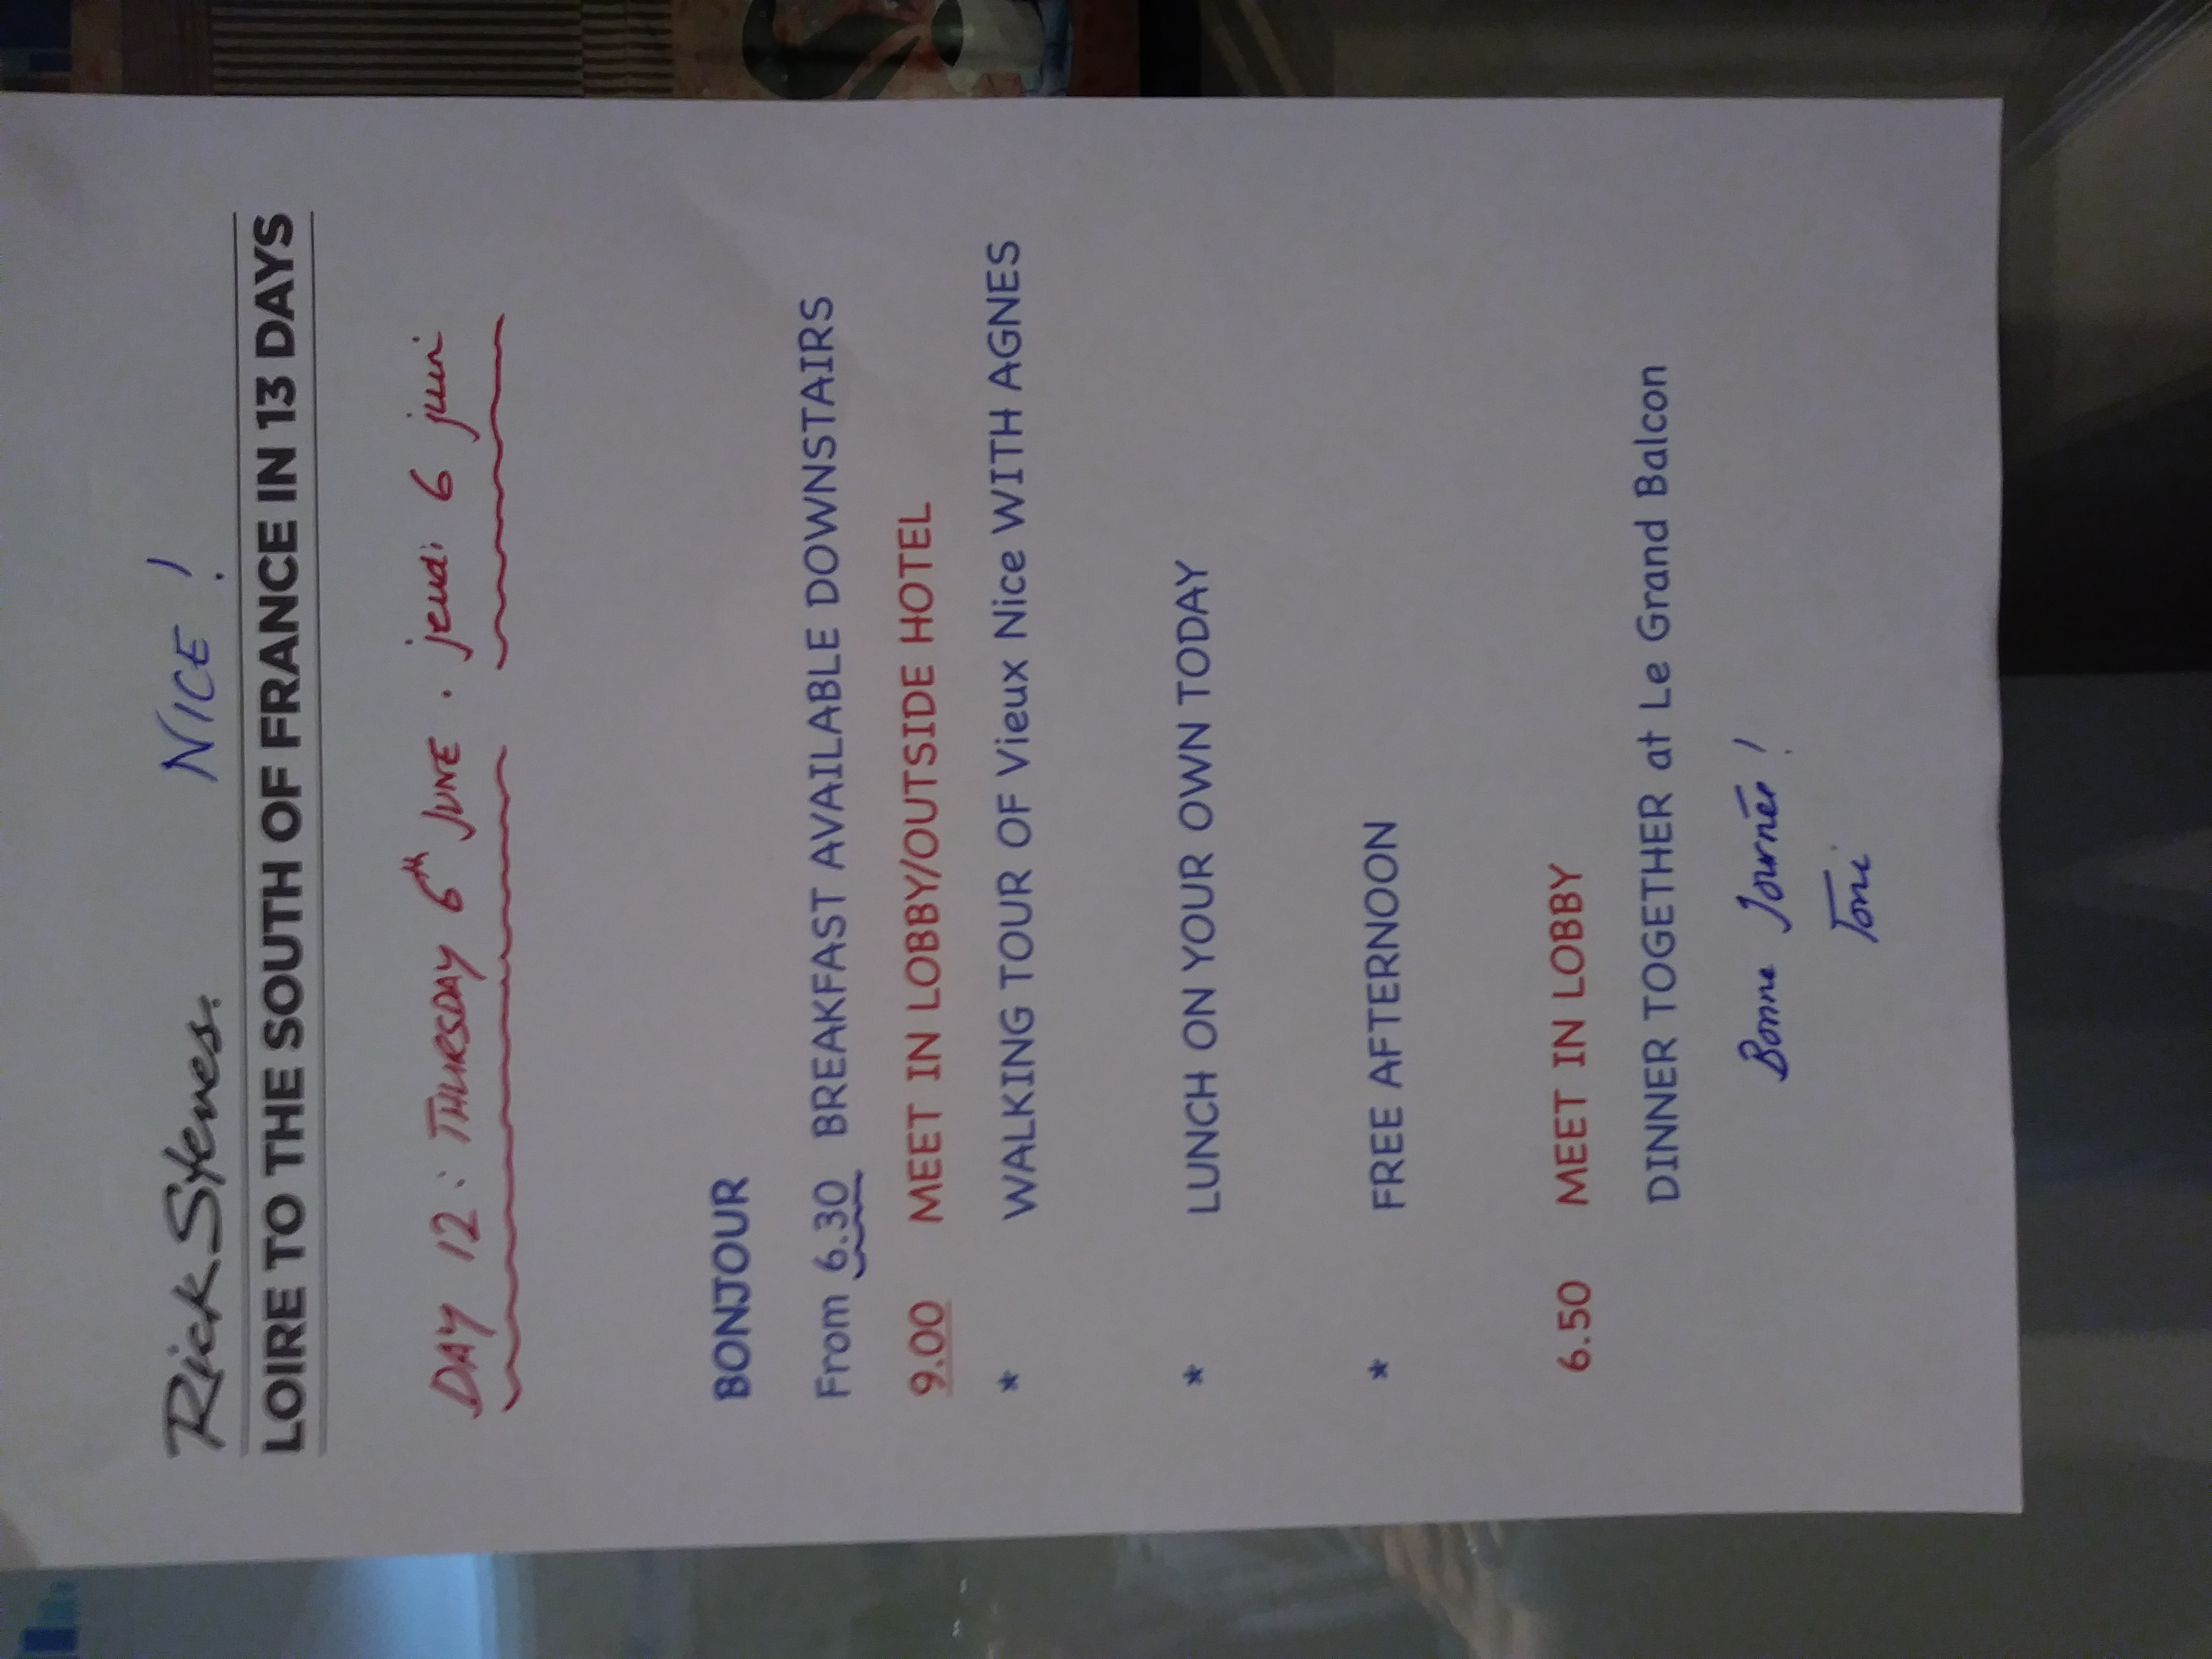 Rick Steves. NICE!
LOIRE TO THE SOUTH OF FRANCE IN 13 DAYS
DAY 12: THURSDAY 6th JUNE. jeudi 6 juin
BONJOUR
From 6.30 BREAKFAST AVAILABLE DOWNSTAIRS
9.00 MEET IN LOBBY/OUTSIDE HOTEL
* WALKING TOUR OF Vieux Nice WITH AGNES
* LUNCH ON YOUR OWN TODAY
* FREE AFTERNOON
6.50 MEET IN LOBBY
DINNER TOGETHER at Le Grand Balcon
Bonne Journée!
Toni